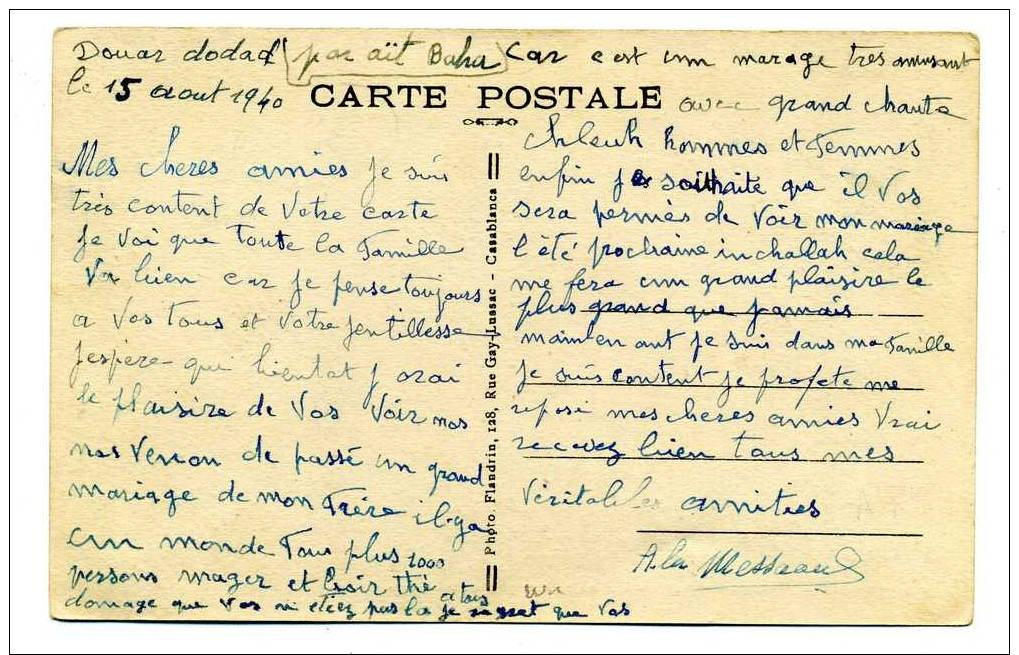 Douar dodad (par aït Baha)
le 15 aout 1940
CARTE POSTALE
Mes cheres amies Je suis
très content de Votre carte
Je voi que toute la Famille
Va bien car Je pense toujours
a Vos tous et Votre jentillesse
Jespère qui bientat J orai
le plaisire de Vos Voir nos
nos venon de passé un grand
mariage de mon Frère il-ya
un monde Tous plus 2000
persons mager et boir thé a tous
domage que Vos ni etiez pas la Je regret que Vos
Photo. Flandrin, 128, Rue Gay-Lussac - Casablanca
car c est un marage tres amusant
avec grand chauta
chleuh hommes et Femmes
enfin je souhaite que il Vos
sera permies de Voir mon mariage
l'été prochaine inchallah cela
me fera un grand plaisire le
plus grand que jamais
mainten ant je suis dans ma Famille
Je suis content Je profete me
reposé mes cheres amies Vrai
recevez bien tous mes
Véritables amities